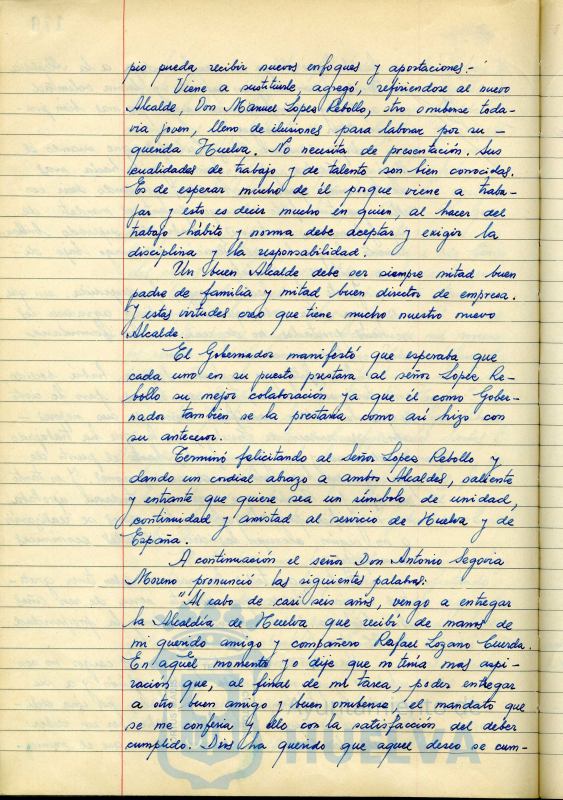 pio pueda recibir nuevos enfoques y aportaciones.-
Viene a sustituirle, agregó, refiriéndose al nuevo
Alcalde, Don Manuel López Rebollo, otro onubense toda-
vía joven, lleno de ilusiones para laborar por su -
querida Huelva. No necesita de presentación. Sus
cualidades de trabajo y de talento son bien conocidas.
Es de esperar mucho de él porque viene a traba-
jar y esto es decir mucho en quien, al hacer del
trabajo hábito y norma debe aceptar y exigir la
disciplina y la responsabilidad.
Un buen Alcalde debe ser siempre mitad buen
padre de familia y mitad buen director de empresa.
Y estas virtudes creo que tiene mucho nuestro nuevo
Alcalde.
El Gobernador manifestó que esperaba que
cada uno en su puesto prestara al señor López Re-
bollo su mejor colaboración ya que él como Gober-
nador también se la prestaría como así hizo con
su antecesor.
Terminó felicitando al Señor López Rebollo y
dando un cordial abrazo a ambos Alcaldes, saliente
y entrante que quiere sea un símbolo de unidad,
continuidad y amistad al servicio de Huelva y de
España.
A continuación el señor Don Antonio Segovia
Moreno pronunció las siguientes palabras:
"Al cabo de casi seis años, vengo a entregar
la Alcaldía de Huelva que recibí de manos de
mi querido amigo y compañero Rafael Lozano Cuerda.
En aquel momento yo dije que no tenía mas aspi-
ración que, al final de mi tarea, poder entregar
a otro buen amigo y buen onubense, el mandato que
se me confería y ello con la satisfacción del deber
cumplido. Dios ha querido que aquel deseo se cum-
HUELVA